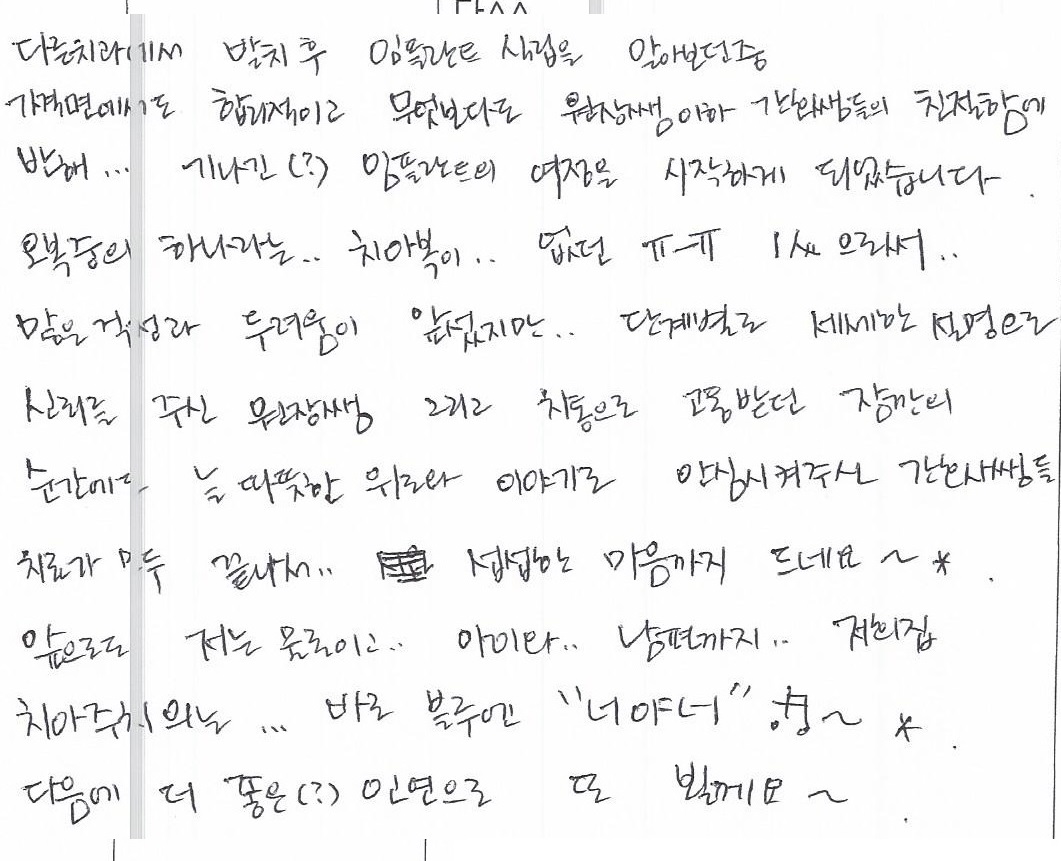 다른치과에서 발치 후 임플란트 식립을 알아보던중
가격면에서도 합리적이고 무엇보다도 원장쌤이하 간호쌤들의 친절함에
반해... 기나긴(?) 임플란트의 여정을 시작하게 되었습니다.
오복중의 하나라는.. 치아복이.. 없던 ㅠ-ㅠ 1人으로써..
많은 걱정과 두려움이 앞섰지만.. 단계별로 세세한 설명으로
신뢰를 주신 원장쌤 그리고 치통으로 고통받던 잠깐의
순간에도 늘 따뜻한 위로와 이야기로 안심시켜주신 간호사쌤들
치료가 모두 끝나서.. 섭섭한 마음까지 드네요~*.
앞으로도 저는 물론이고.. 아이와.. 남편까지.. 저희집
치아주치의는 ... 바로 블루엔 "너야너" ♬~*.
다음에 더 좋은(?) 인연으로 또 뵐게요~.